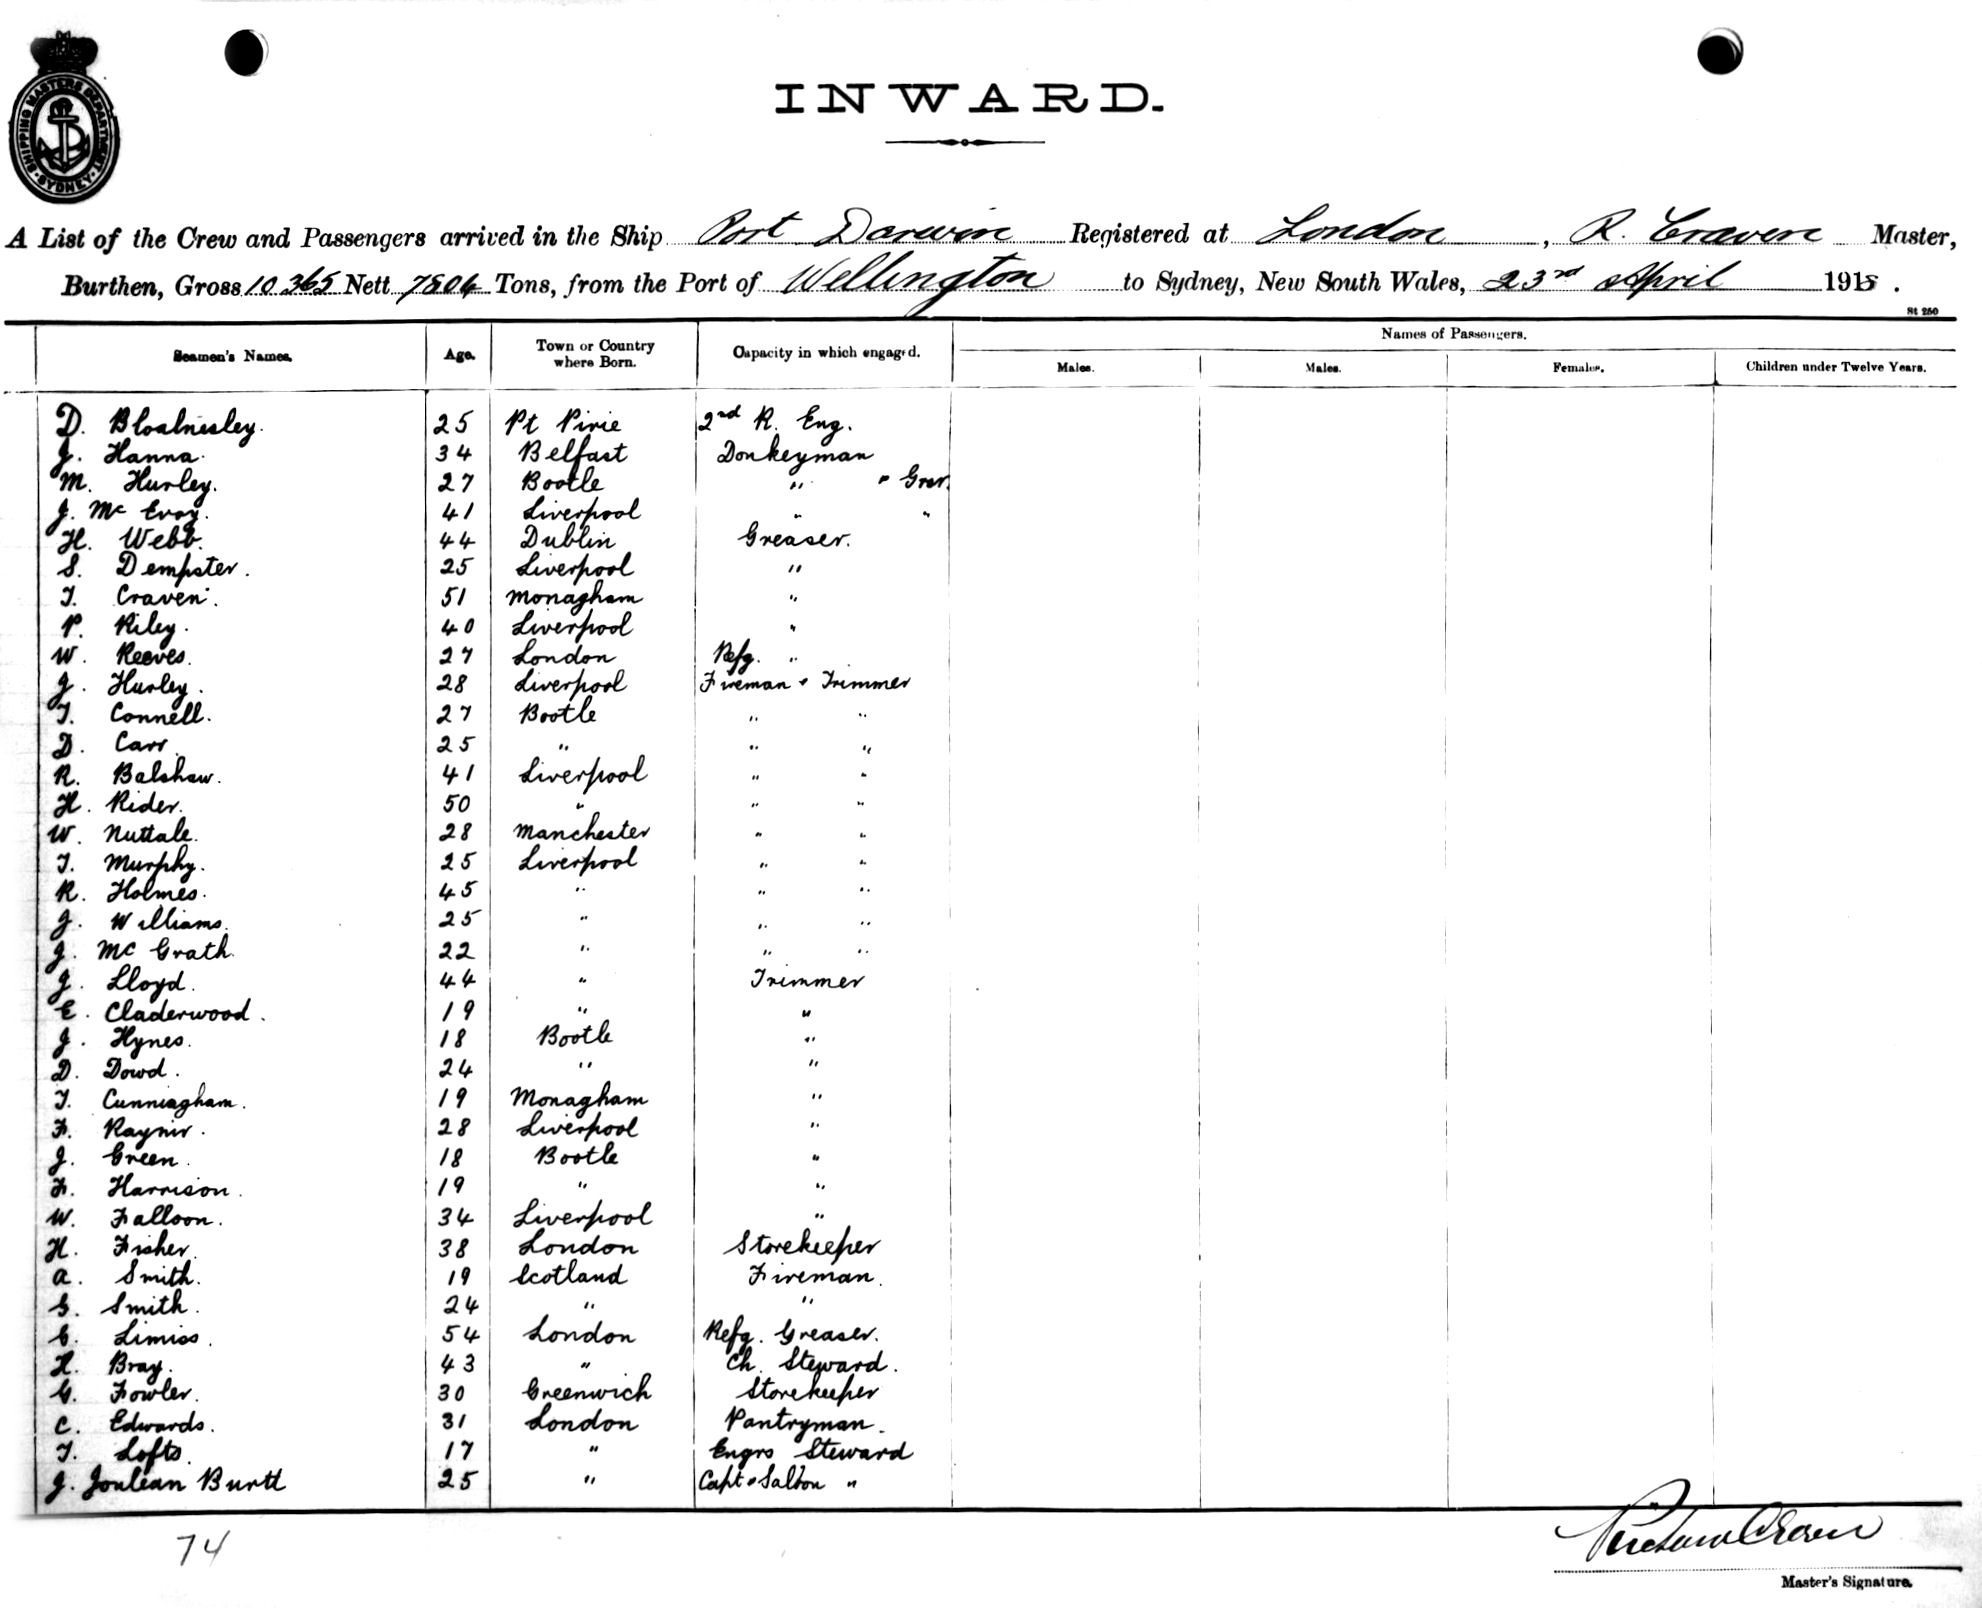 SHIPPING MASTERS DEPARTMENT
SYDNEY
INWARD.
A List of the Crew and Passengers arrived in the Ship Port Darwin Registered at London, R. Craven Master,
Burthen, Gross 10365 Nett 7806 Tons, from the Port of Wellington to Sydney, New South Wales, 23rd April 1918.
St 250
Seamen's Names. Age. Town or Country where Born. Capacity in which engaged. Names of Passengers.
Males. Males. Females. Children under Twelve Years.
D. 25 Pt Pirie 2nd R. Eng.
J. Hanna. 34 Belfast Donkeyman
M. Hurley. 27 Bootle " " Gser.
J. Mc Evoy. 41 Liverpool " "
H. Webb. 44 Dublin Greaser.
S. Dempster. 25 Liverpool "
T. Craven. 51 Monagham "
P. Riley. 40 Liverpool "
W. Reeves. 27 London Refg. "
J. Hurley. 28 Liverpool Fireman & Trimmer
T. Connell. 27 Bootle " "
D. Carr. 25 " " "
R. Balshaw. 41 Liverpool " "
H. Rider. 50 " " "
W. Nuttale. 28 Manchester " "
T. Murphy. 25 Liverpool " "
R. Holmes. 45 " " "
J. Williams. 25 " " "
J. Mc Grath. 22 " " "
J. Lloyd. 44 " Trimmer
E. Claderwood. 19 " "
J. Hynes. 18 Bootle "
D. Dowd. 24 " "
T. Cunniagham. 19 Monagham "
F. Raynir. 28 Liverpool "
J. Green. 18 Bootle "
F. Harrison. 19 " "
W. Falloon. 34 Liverpool "
H. Fisher. 38 London Storekeeper
A. Smith. 19 Scotland Fireman.
G. Smith. 24 " "
C. Limiss. 54 London Refg. Greaser.
H. Bray. 43 " Ch. Steward.
G. Fowler. 30 Greenwich Storekeeper
C. Edwards. 31 London Pantryman.
T. Lofts. 17 " Engrs Steward
J. Burtt 25 " Capt & Saloon "
74
Master's Signature.